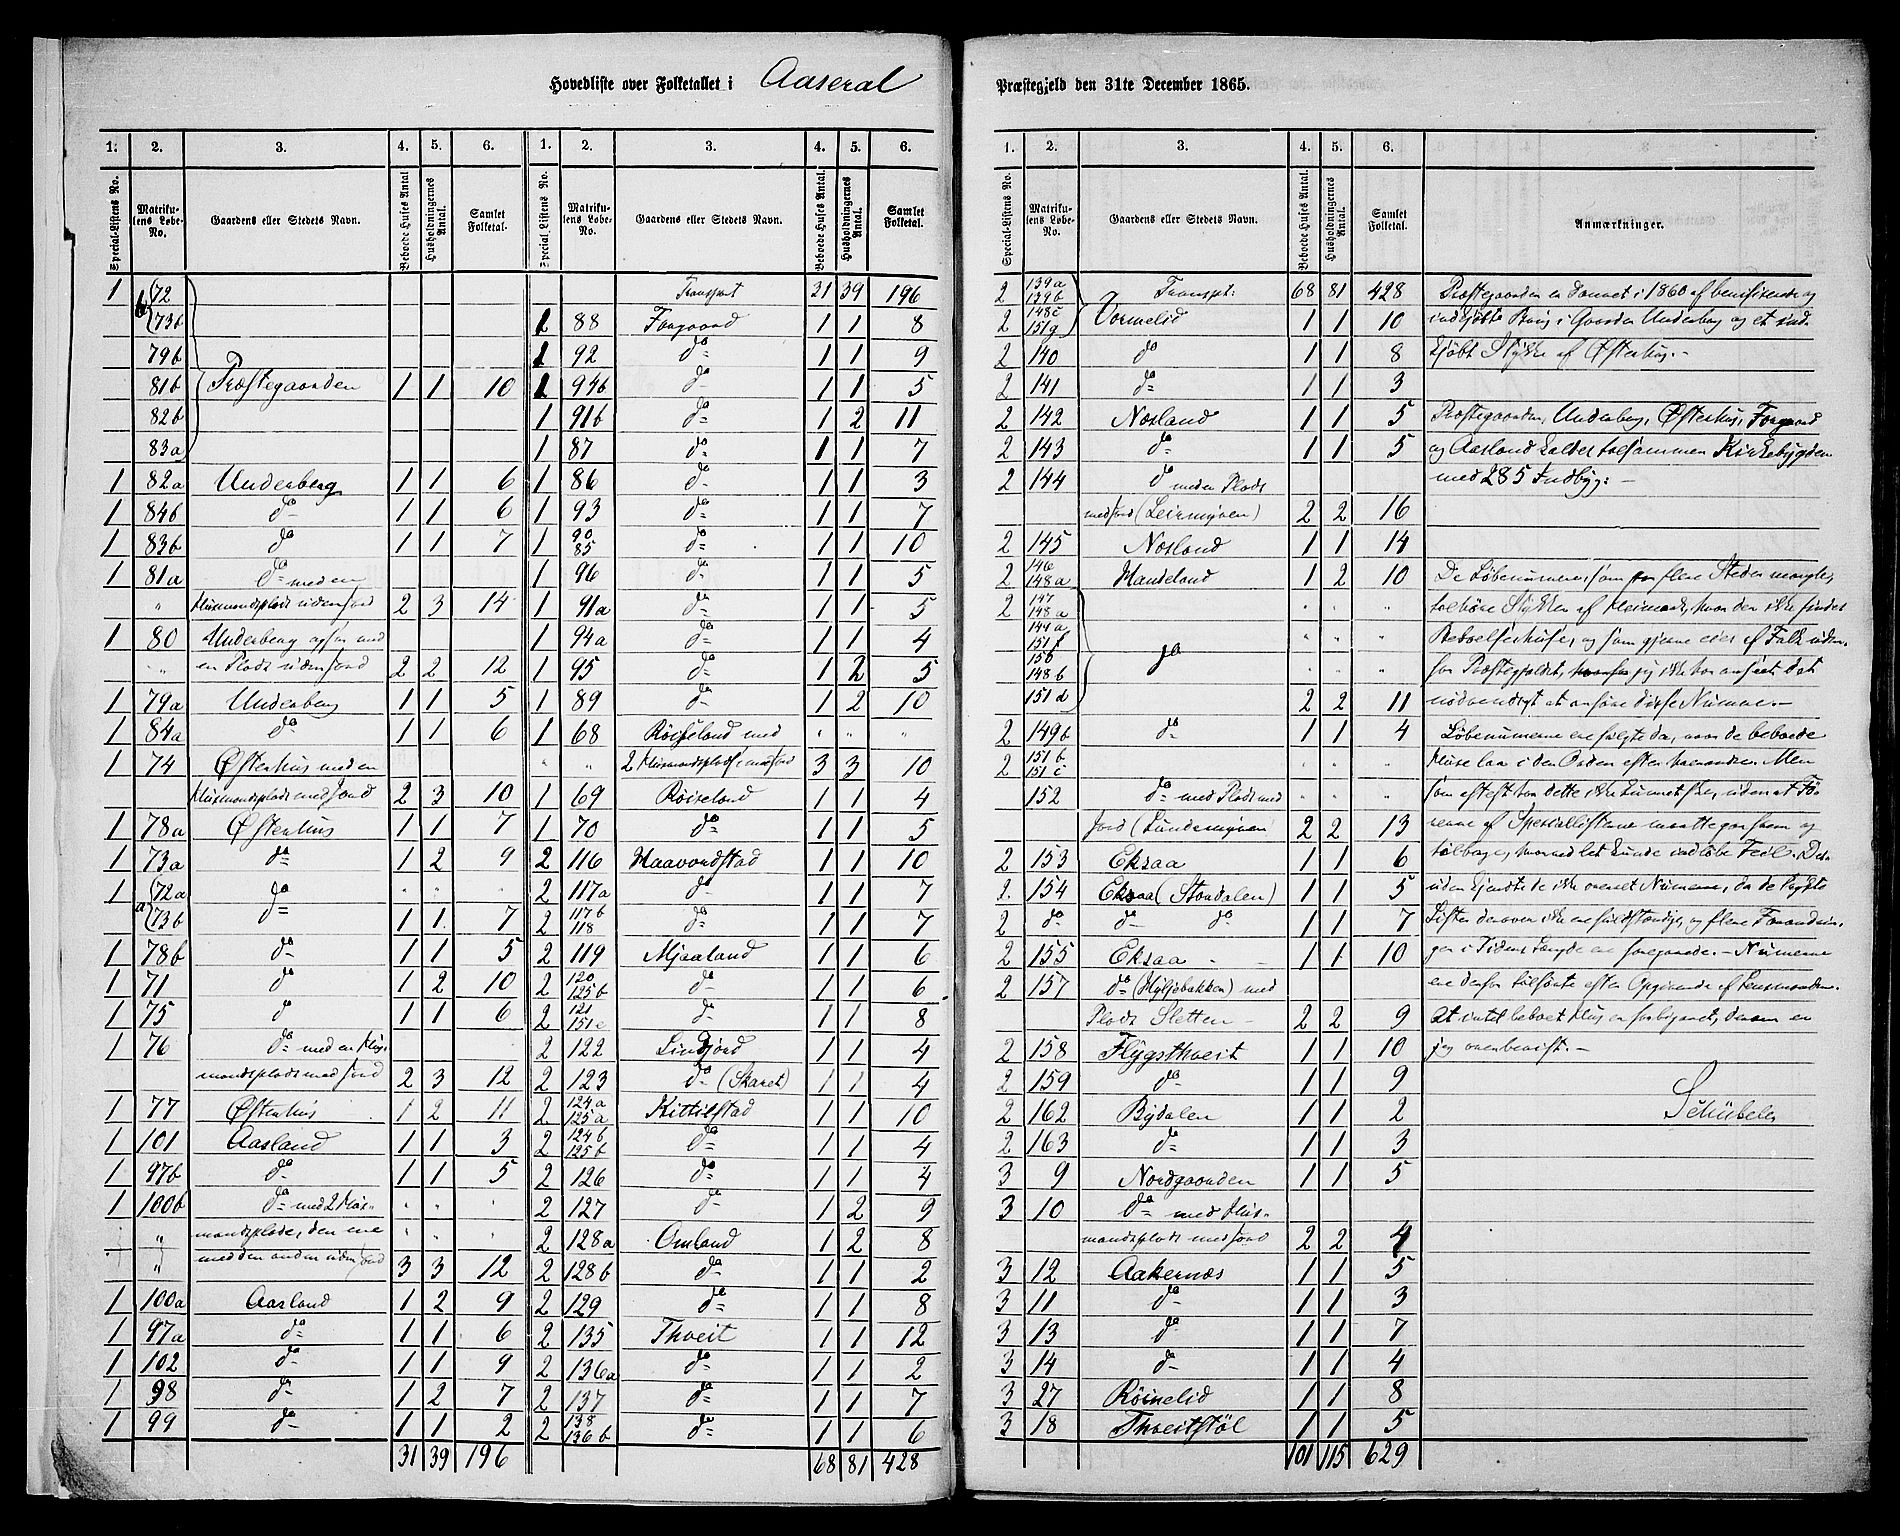 Hovedliste over Folketallet i Aaseral
1. 2. 3. 4. 5. 6. 1. 2. 3. 4. 5. 6.
Special-Listens No. Matrikulens Løbe-No. Gaardens eller Stedets Navn. Beboede Huses Antal Husholdningernes Antal. Samlet Folketal. Special Listens No. Matrikulens Løbe-No. Gaardens eller Stedets Navn. Beboede Huses Antal. Husholdningernes Antal. Samlet Folketal.
1 b 72 Transport 31 39 196
73b 1 88 Forgaard 1 1 8
79b 1 92 do 1 1 9
81b Præstegaarden 1 1 10 1 94b do 1 1 5
82b 1 91b do 1 2 11
83a 1 87 do 1 1 7
1 82a Underberg 1 1 6 1 86 do 1 1 3
1 84b do 1 1 6 1 93 do 1 1 7
1 83b do 1 1 7 1 90 85 do 1 1 10
1 81a do med en 1 96 do 1 1 5
" Husmandsplads uden Jord 2 3 14 1 91a do 1 1 5
1 80 Underberg 1 94a do 1 1 4
" en Plads uden Jord 2 2 12 1 95 do 1 2 5
1 79a Underberg 1 1 5 1 89 do 1 2 10
1 84a do 1 1 6 1 68 Røiseland med " " "
1 74 Østerhus med en " " 2 Husmandspladse med Jord 3 3 10
Husmandsplads med Jord 2 3 10 1 69 Røiseland 1 1 4
1 78a Østerhus 1 1 7 1 70 do 1 1 5
1 73a do 1 2 9 2 116 Haavordstad 1 1 10
1 a 72a do " " " 2 117a do 1 1 7
73b 1 1 7 2 117b 118 do 1 1 7
1 78b do 1 1 5 2 119 Mjaaland 1 1 6
1 71 do 1 2 10 2 120 125b do 1 1 6
1 75 do 1 1 6 2 121 151e do 1 1 8
1 76 do med en Hus- 2 122 Lindjord 1 1 4
mandsplads med Jord 2 3 12 2 123 do (Skaret) 1 1 4
1 77 Østerhus 1 2 11 2 124a 125a Kittilstad 1 1 10
1 101 Aasland 1 1 3 2 124b 125b do 1 1 4
1 97b do 1 1 5 2 126 do 1 1 4
1 100b do med 2 Hus- " " " 2 127 do 1 2 9
" mandspladse, den ene " " " 2 128a Omland 1 2 8
" med den anden uden Jord 3 3 12 2 128b do 1 1 2
1 100a Aasland 1 2 9 2 129 do 1 1 8
1 97a do 1 1 6 2 135 Thveit 1 1 12
1 102 do 1 1 9 2 136a do 1 1 2
1 98 do 1 2 7 2 137 do 1 1 7
1 99 do 1 1 2 2 138 136b do 1 1 6
31 39 196 68 81 428
Præstegjeld den 31te December 1865.
1. 2. 3. 4. 5. 6.
Special-Listens No. Matrikulens Løbe-No. Gaardens eller Stedets Navn. Beboede Huses Antal. Husholdningernes Antal. Samlet Folketal. Anmærkninger.
2 139a 139b Transpt: 68 81 428 Præstegaarden er dannet i 1860 af og
2 148c 151g Vormelid 1 1 10 indkjøbte Brug i Gaarden Underberg og et ind-
2 140 do 1 1 8 kjøbt Stykke af Østerhus.-
2 141 do 1 1 3
2 142 Nosland 1 1 5 Præstegaarden, Underberg, Østerhus, Forgaard
2 143 do 1 1 5 og Aasland kaldes tilsammen Kirkebygden
2 144 do med en Plads med 285 Indbyg: -
med Jord (Leirmyren) 2 2 16
2 145 Nosland 1 1 14
2 146 148a Handeland 1 2 10 De Løbenumere som for flere Steder mangle,
2 147 148a " " " tilhøre Stykker af Heimark, hvor der ikke findes
144a 151f do " " " Beboelseshuse, og som gjerne eies af Folk uden-
150 148b " " " for Præstegjeldet, jeg ikke har anseet det
151d 2 2 11 nødvendigt at anføre disse Numere.-
2 149b do 1 1 4 Løbenumerne ere fulgte da, naar de beboede
2 151b 151c Huse laa i den Orden efter hverandre. Men
152 do med Plads med som oftest har dette ikke kunnet ske, uden at Fø-
Jord (Lundemyren) 2 2 13 rerne af Speciallisterne maatte gaa frem og
2 153 Eksaa 1 1 6 tilbage, hvorved let kunde indløbe Feil. Des-
2. 154 Eksaa (Stordalen) 1 1 5 uden kjendte de ikke overalt Numerne, da de trykte
2 do do do 1 1 7 Lister derover ikke ere fuldstændige, og flere Forandrin-
2 155 Eksaa 1 1 10 ger i Tidens Længde ere foregaaede.- Numerne
2 157 do (Hyljebakken) med ere derfor tilførte efter Opgivende af Lensmanden.
Plads Sletten 2 2 9 At intet beboet Hus er forbigaaet, derom er
2 158 Flygsthveit 1 1 10 jeg overbevist.-
2 159 do 1 1 9
2 162 Bydalen 1 1 2 Schübeler
2 163 do 1 1 3
3 9 Nordgaarden 1 1 5
3 10 do med Hus-
mandsplads med Jord 2 2 4
3 12 Aakernæs 1 1 5
3 11 do 1 1 3
3 13 do 1 1 7
3 14 do 1 1 4
3 27 Røinelid 1 1 8
3 18 Thveitstøl 1 1 5
101 115 629